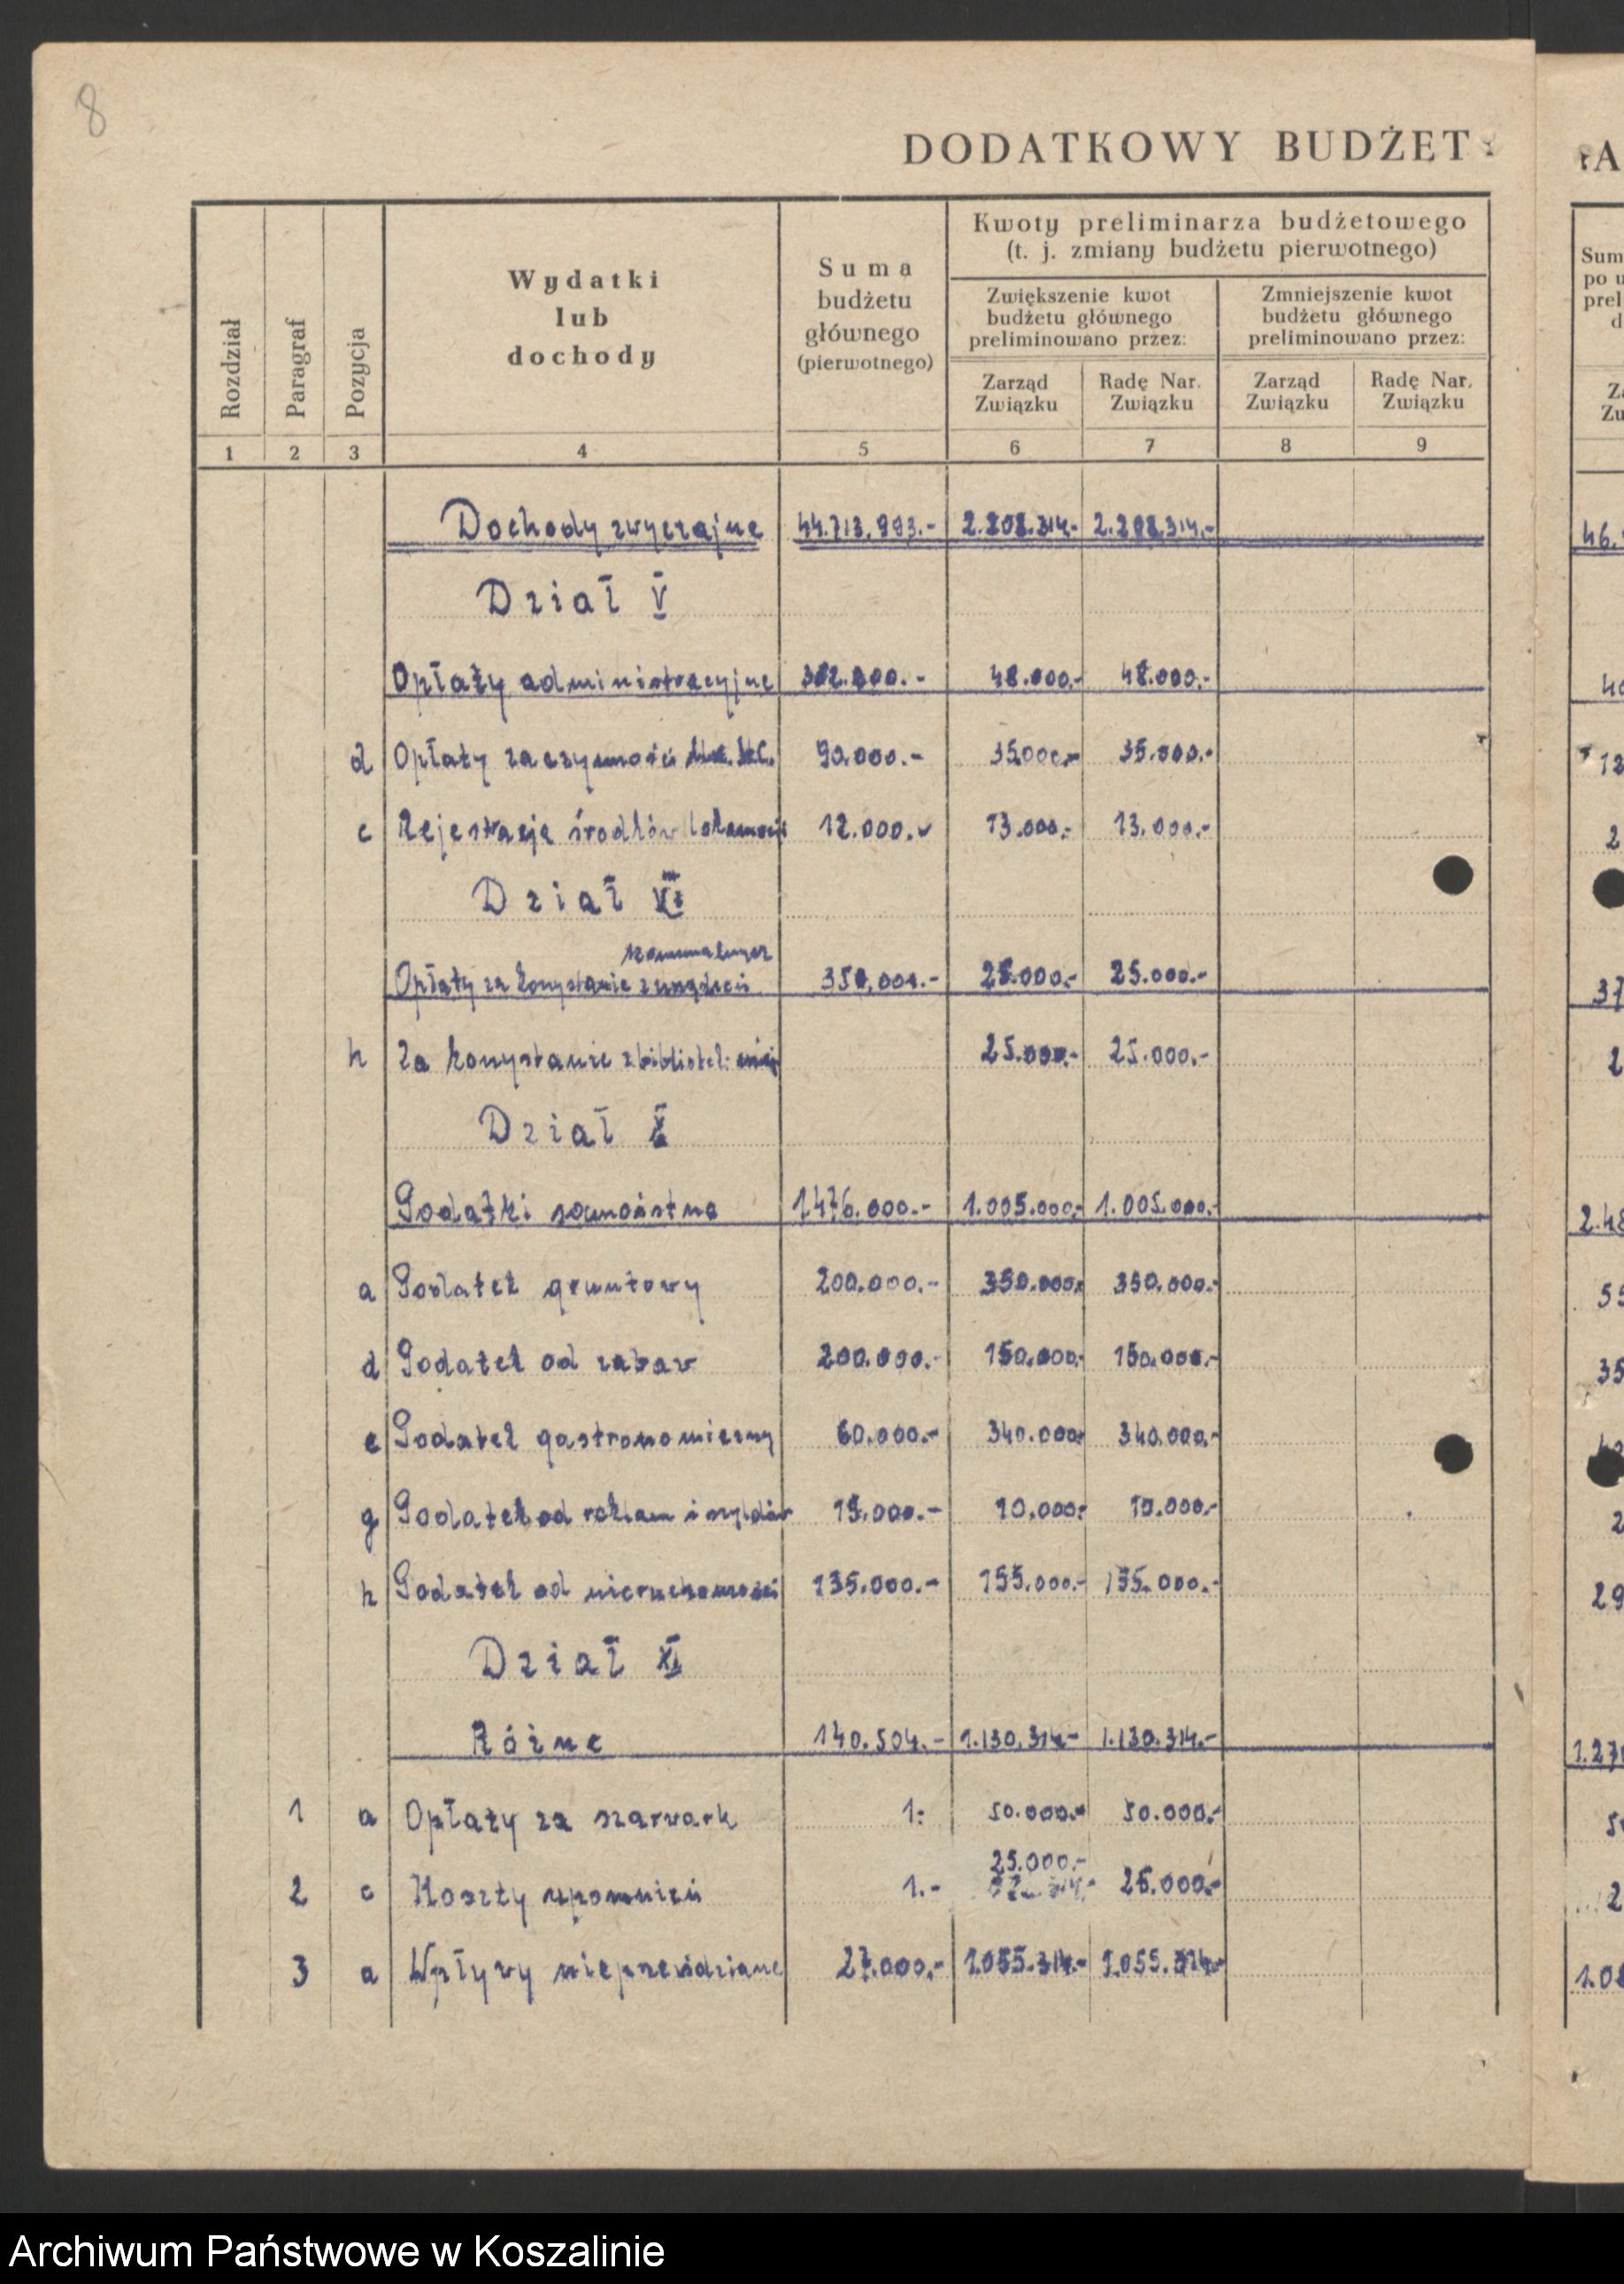 8
DODATKOWY BUDŻET
Rozdział
Paragraf
Pozycja
Wydatki
lub
dochody
Suma
budżetu
głównego
(pierwotnego)
Kwoty preliminarza budżetowego
(t. j. zmiany budżetu pierwotnego)
Zwiększenie kwot
budżetu głównego
preliminowano przez:
Zmniejszenie kwot
budżetu głównego
preliminowano przez:
Zarząd
Związku
Radę Nar.
Związku
Zarząd
Związku
Radę Nar.
Związku
1 2 3 4 5 6 7 8 9
Dochody zwyczajne 44.713.993.- 2.208.314.- 2.208.314.-
Dział V
Opłaty administracyjne 48.000.- 48.000.-
d Opłaty za czynności 90.000.- 35.000.- 35.000.-
c Rejestracja środków lokomocji 12.000.- 13.000.- 13.000.-
Dział
Opłaty za korzystanie z urządzeń 25.000.- 25.000.-
h Za korzystanie z bibliotek 25.000.- 25.000.-
Dział X
Podatki samoistne 1476.000.- 1.005.000.- 1.005.000.-
a Podatek gruntowy 200.000.- 350.000.- 350.000.-
d Podatek od zabaw 200.000.- 150.000.- 150.000.-
e Podatek gastronomiczny 60.000.- 340.000.- 340.000.-
g Podatek od reklam i szyldów 15.000.- 10.000.- 10.000.-
h Podatek od nieruchomości 135.000.- 155.000.- 155.000.-
Dział XI
Różne 140.504.- 1.130.314.- 1.130.314.-
1 a Opłaty za szarwark 1.- 50.000.- 50.000.-
25.000.-
2 c Koszty upomnień 1.- 25.000.-
3 a Wpływy nieprzewidziane 27.000.- 1.055.314.- 1.055.314.-
Archiwum Państwowe w Koszalinie